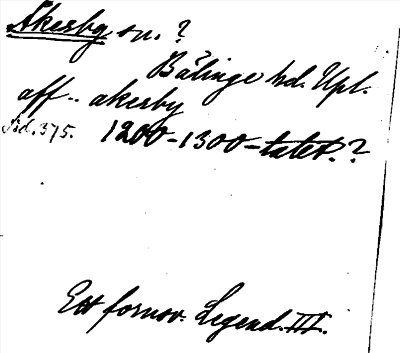 Åkerby sn. ?
Bälinge hd. Upl.
aff .. akerby
Sid. 375. 1200-1300-talet. ?
Ett fornsv. Legend. III.